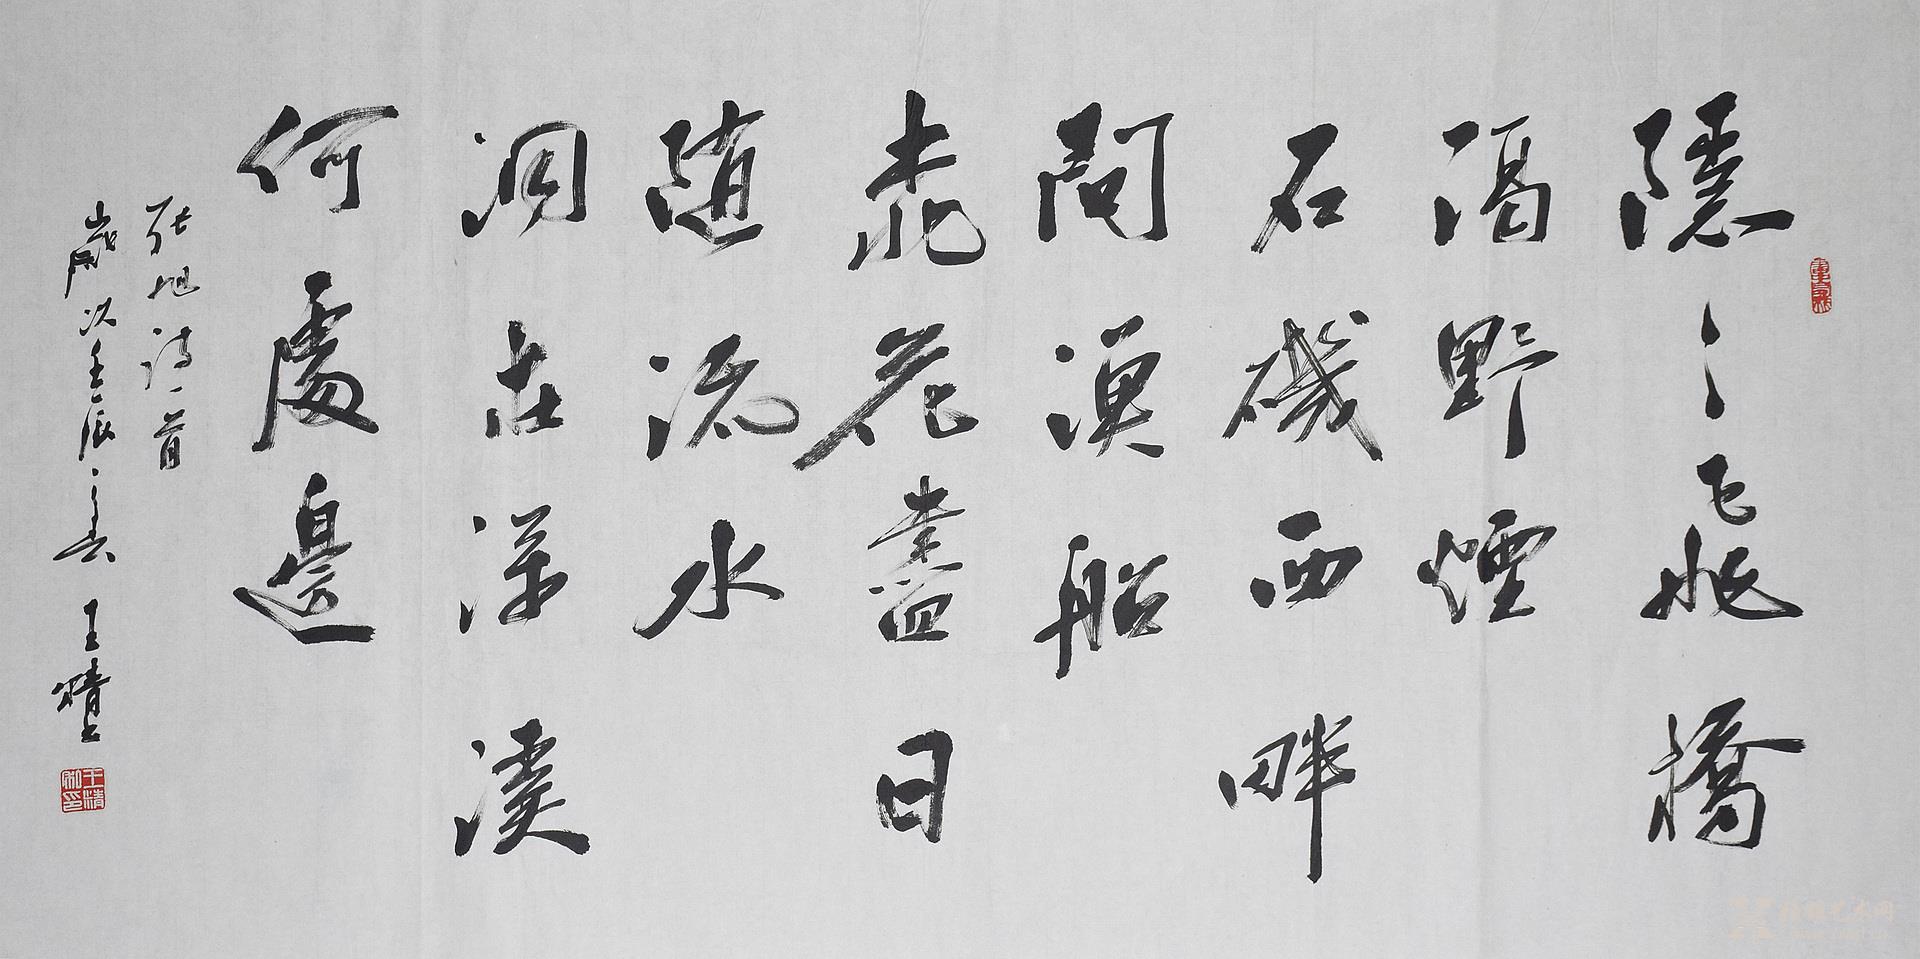 隱〻飛橋
隔野煙
石磯西畔
問漁船
桃花盡日
随流水
洞在溪
何處邊
張旭詩一首
歲次壬辰之春 王